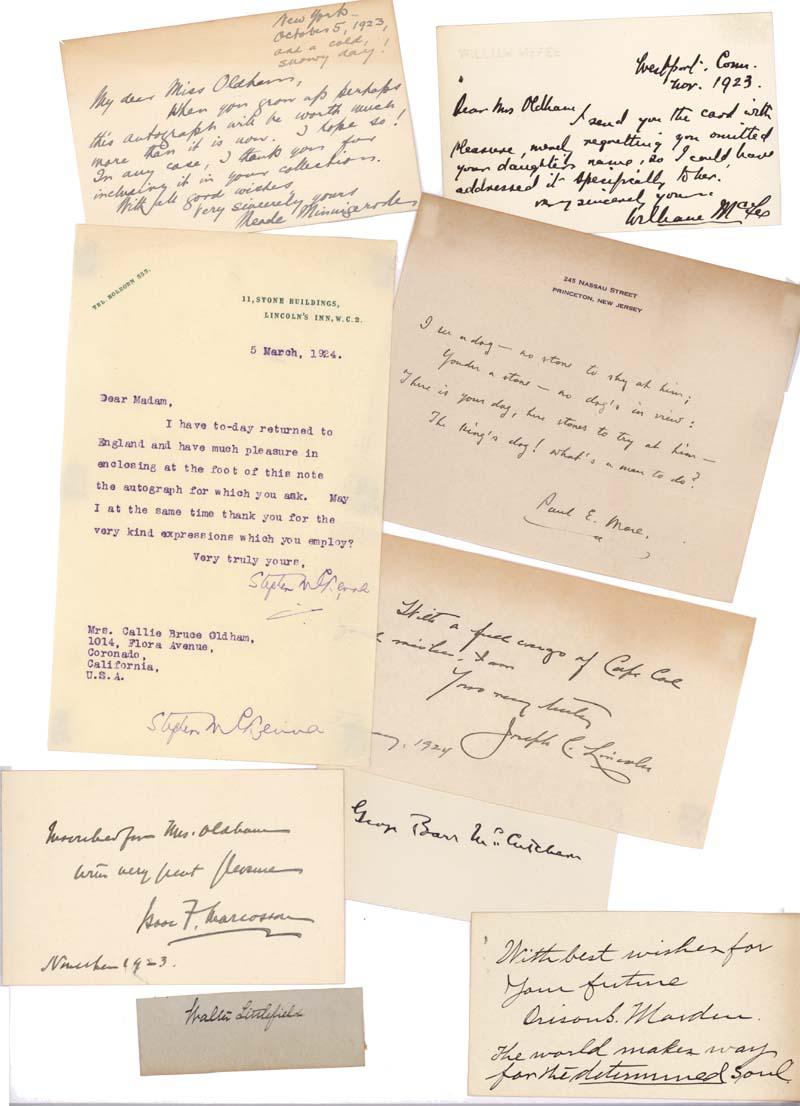 New York-
October 5, 1923,
and a cold,
snowy day!
My dear Miss Oldham,
When you grow up perhaps
this autograph will be worth much
more than it is now. I hope so!
In any case, I thank you for
including it in your collection.
With all good wishes
Very sincerely yours
Meade Minnigerode
WILLIAM McFEE
Westport. Conn.
Nov. 1923.
Dear Mrs Oldham
I send you the card with
pleasure, merely regretting you omitted
your daughter's name, so I could have
addressed it specifically to her.
very sincerely yours
William McFee
TEL. HOLBORN 523.
11, STONE BUILDINGS,
LINCOLN'S INN, W.C.2.
5 March, 1924.
Dear Madam,
I have to-day returned to
England and have much pleasure in
enclosing at the foot of this note
the autograph for which you ask. May
I at the same time thank you for the
very kind expressions which you employ?
Very truly yours,
Stephen McKenna
Mrs. Callie Bruce Oldham,
1014, Flora Avenue,
Coronado,
California,
U.S.A.
Stephen McKenna
245 NASSAU STREET
PRINCETON, NEW JERSEY
I see a dog — no stone to shy at him;
Yonder a stone — no dog's in view:
There is your dog, here stones to try at him —
The King's dog! what's a man to do?
Paul E. More.
With a full cargo of Cape Cod
wishes, I am
Yours very truly
Joseph C. Lincoln
1924
George Barr McCutcheon
Inscribed for Mrs. Oldham
with very great pleasure
Isaac F. Marcosson
November 1923.
Walter Littlefield
With best wishes for
Your future
Orison S. Marden.
The world makes way
for the determined soul.